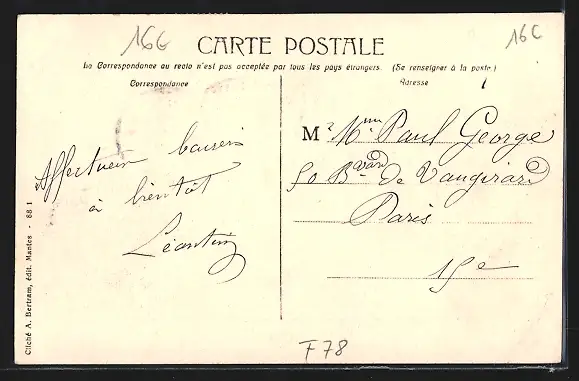 16C
16C
CARTE POSTALE
La Correspondance au recto n'est pas acceptée par tous les pays étrangers. (Se renseigner à la poste)
Correspondance
Adresse
Affectueux baisers
à bientôt
Léontine
M Mme Paul George
50 Bvard de Vaugirard
Paris
15e
Cliché A. Bertram, édit. Mantes - 88 1
F78